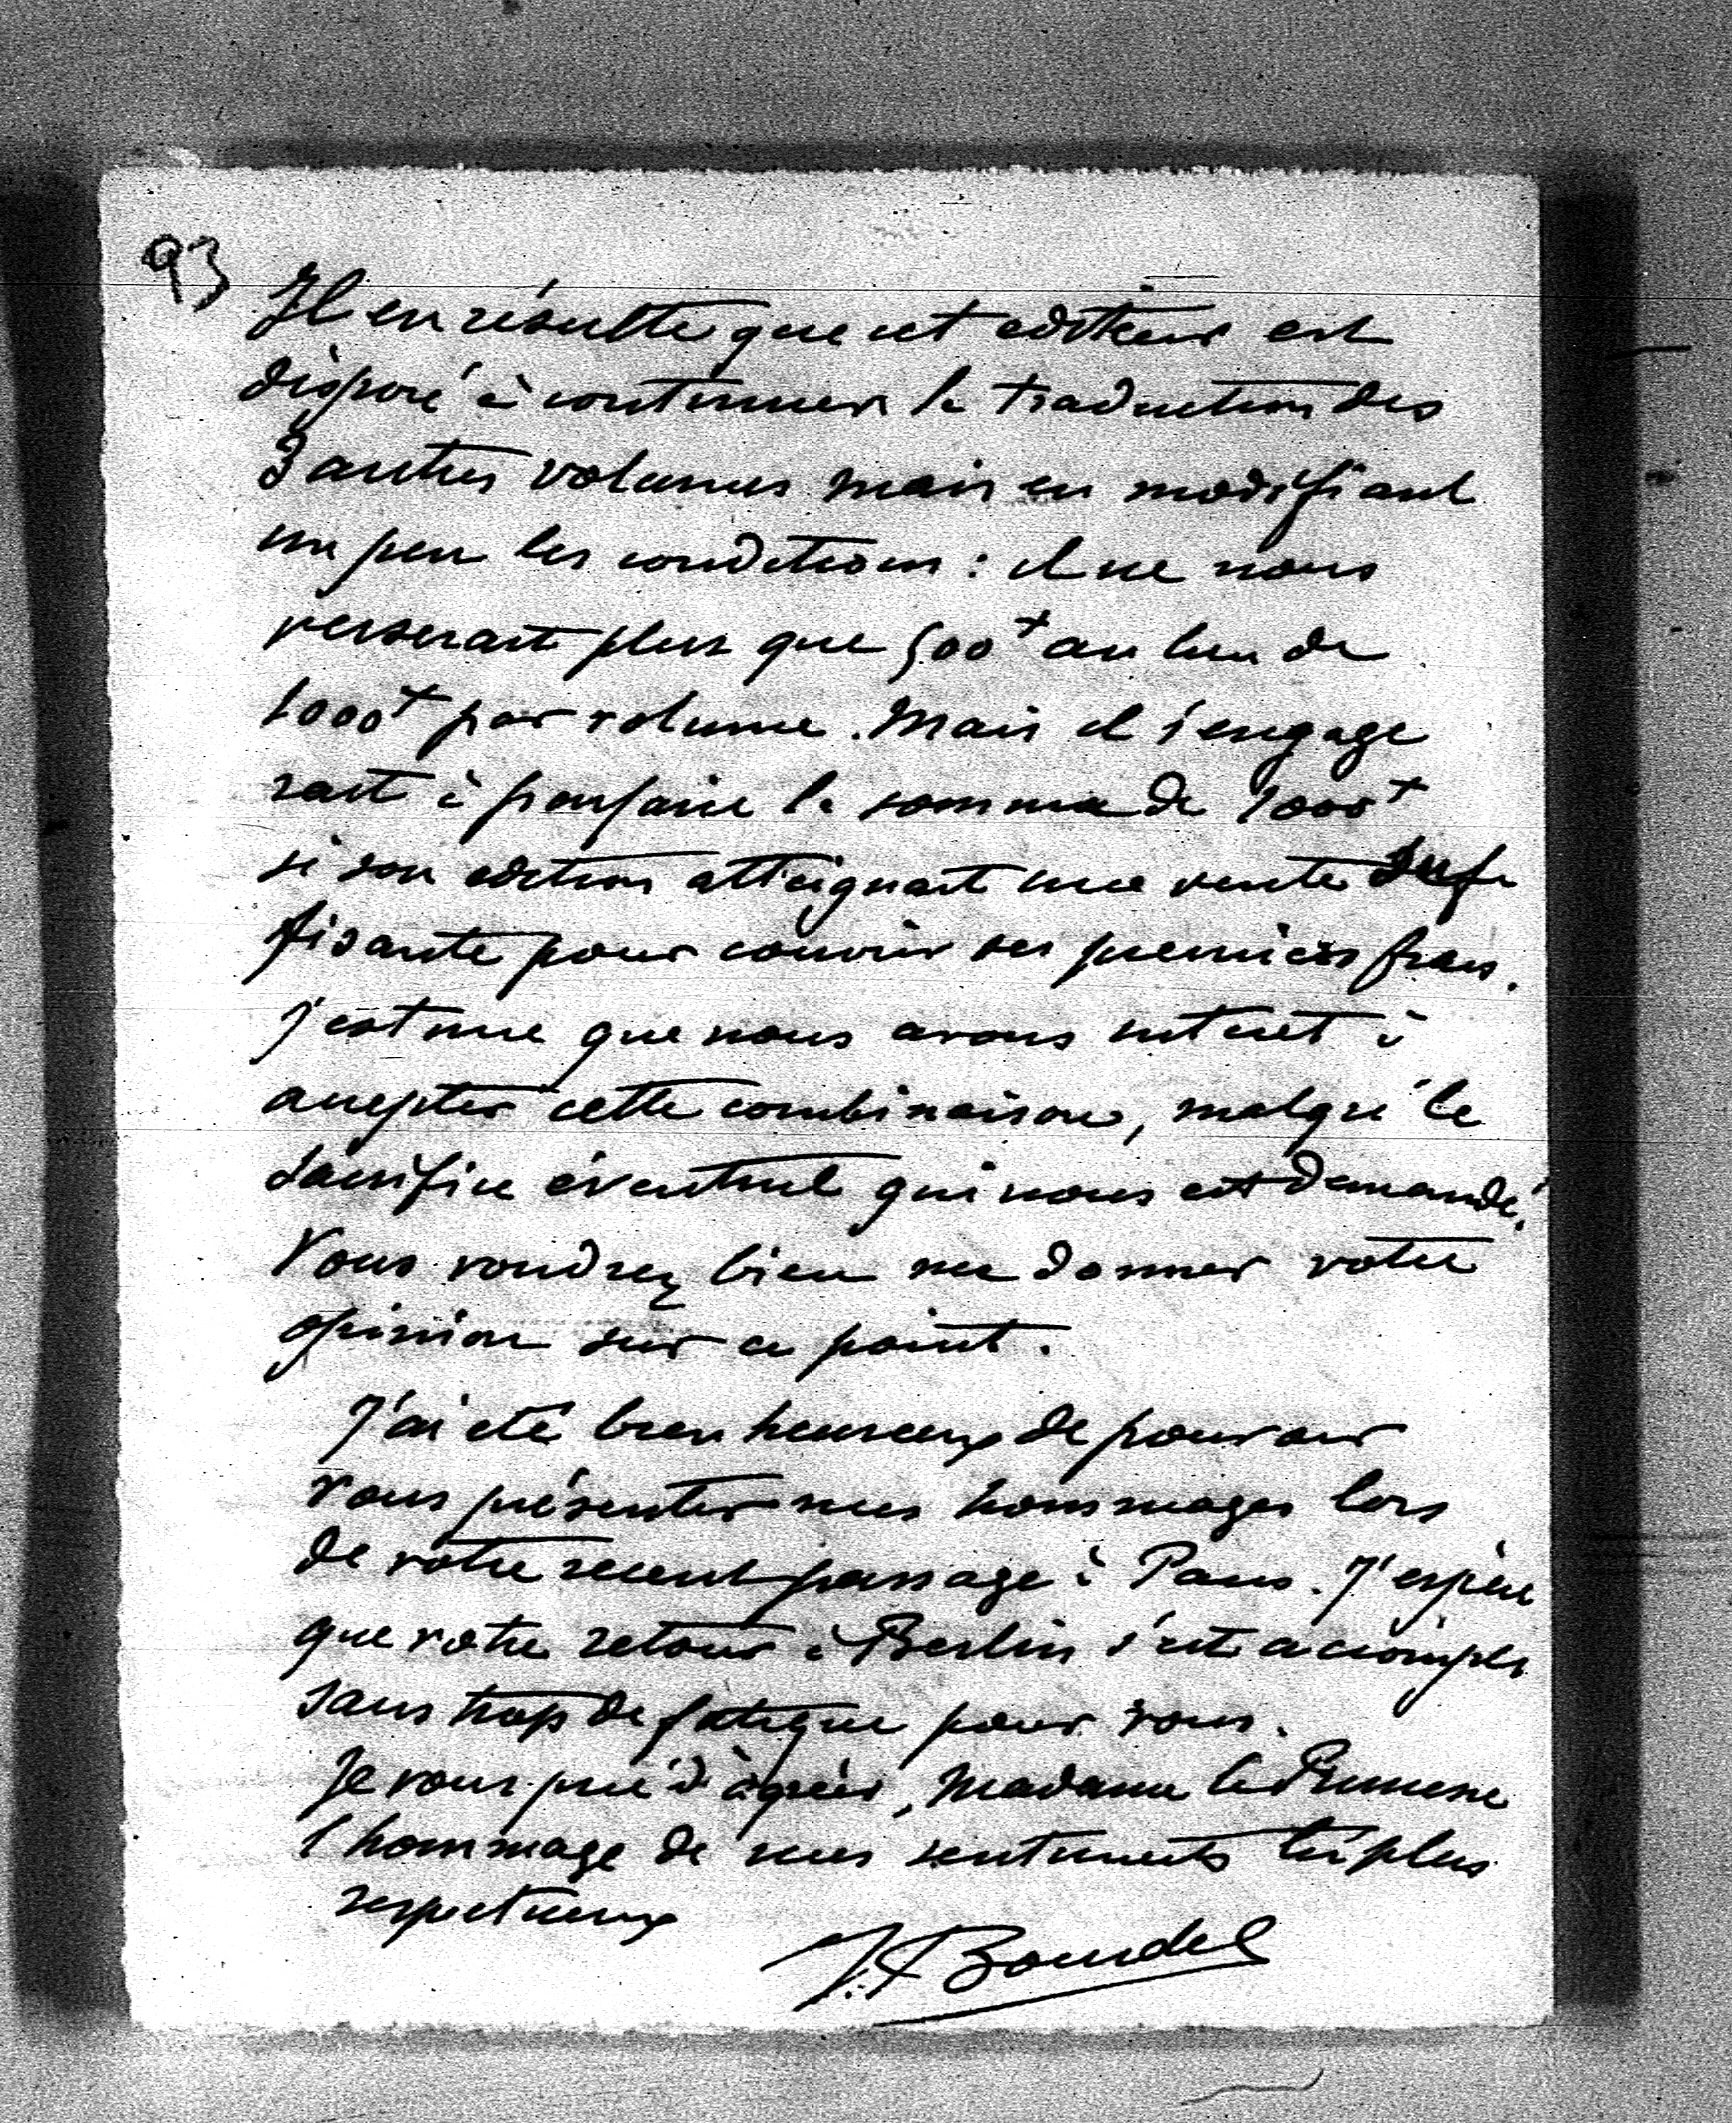 93
Il en résulte que cet editeur est
disposé à continuer la traduction des
3 autres volumes mais en modifiant
un peu les conditions : il ne nous
verserait plus que 500+ au lieu de
1000+ par volume. Mais il s'engage
rait à parfaire la somme de 1000+
si son edition atteignait une vente suf
fisante pour couvrir ses premiers frais.
J'estime que nous avons interet à
accepter cette combinaison, malgré le
sacrifice éventuel qui nous est demandé.
Vous voudrez bien me donner votre
opinion sur ce point.
J'ai eté bien heureux de pouvoir
vous présenter mes hommages lors
de votre recent passage à Paris. J'espère
que votre retour à Berlin s'est accompli
sans trop de fatigue pour vous.
Je vous prie d'agréer, Madame la Princesse
l'hommage de mes sentiments les plus
respectueux
J. Bourdel